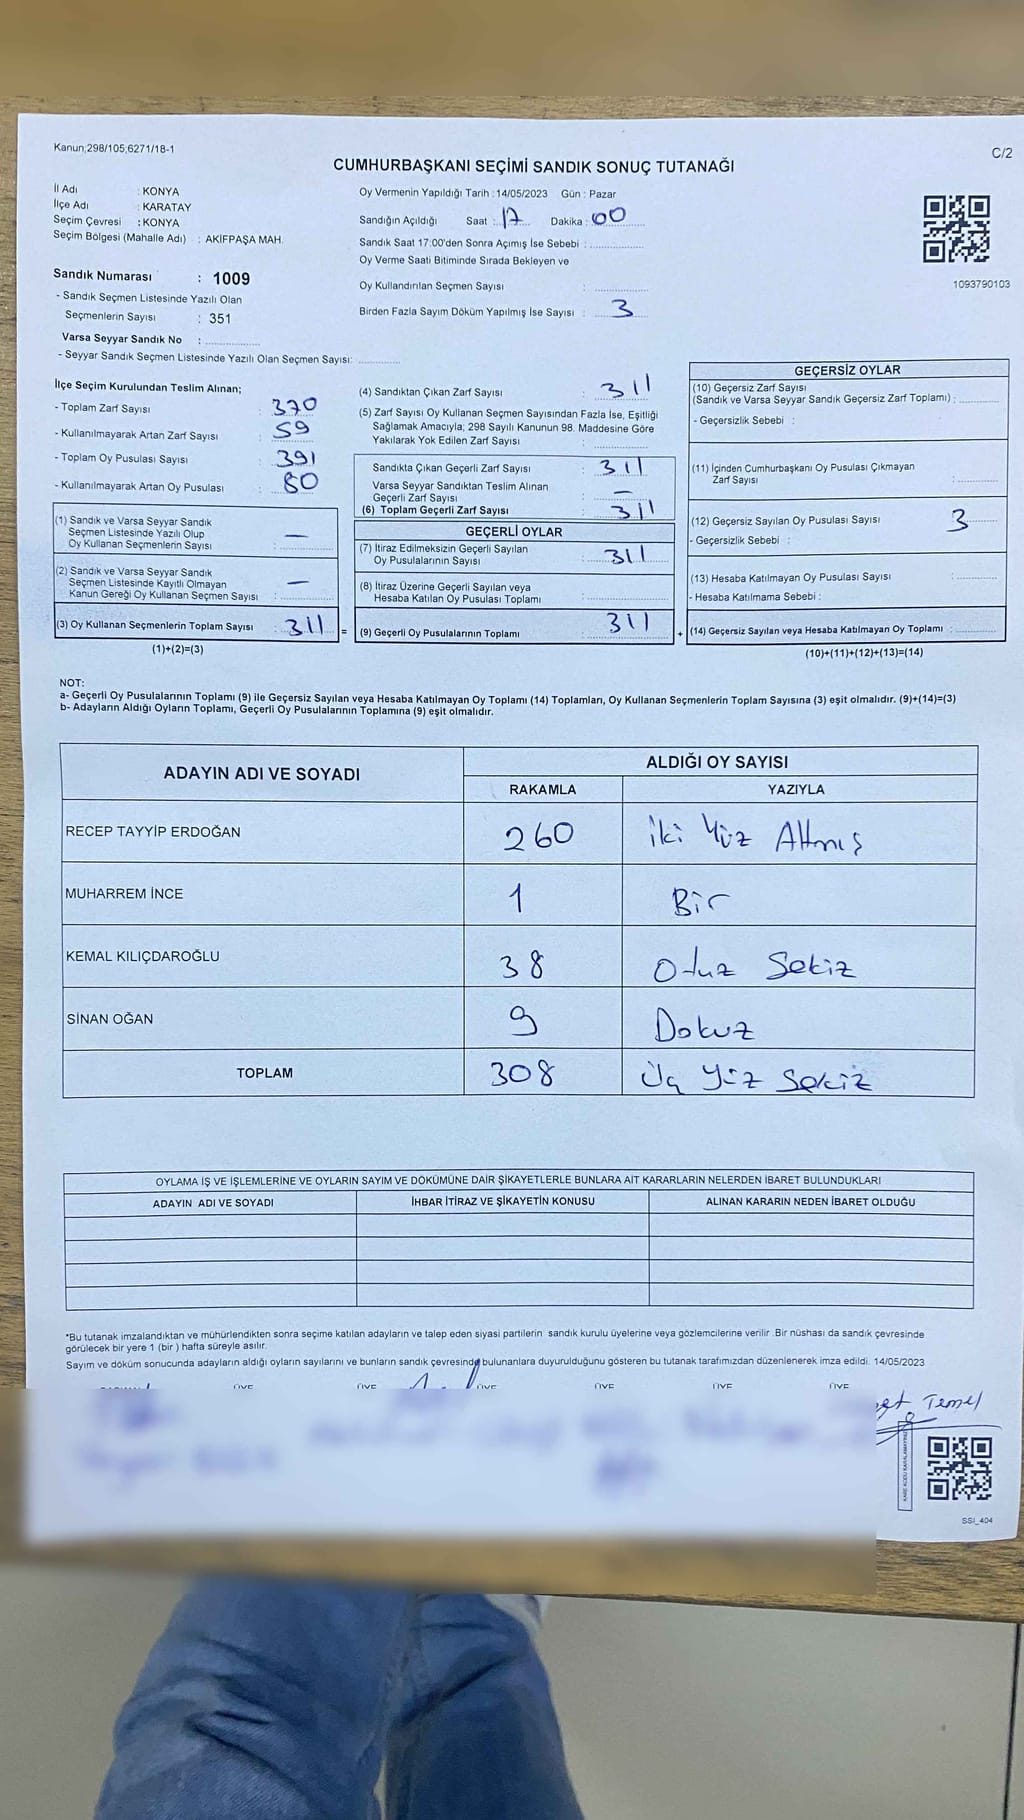 Kanun;298/105;6271/18-1
C/2
CUMHURBAŞKANI SEÇİMİ SANDIK SONUÇ TUTANAĞI
İl Adı : KONYA
İlçe Adı : KARATAY
Seçim Çevresi : KONYA
Seçim Bölgesi (Mahalle Adı) : AKİFPAŞA MAH.
Sandık Numarası : 1009
- Sandık Seçmen Listesinde Yazılı Olan
Seçmenlerin Sayısı : 351
Varsa Seyyar Sandık No :
- Seyyar Sandık Seçmen Listesinde Yazılı Olan Seçmen Sayısı:
Oy Vermenin Yapıldığı Tarih : 14/05/2023 Gün : Pazar
Sandığın Açıldığı Saat : 17 Dakika : 00
Sandık Saat 17:00'den Sonra Açımış İse Sebebi :
Oy Verme Saati Bitiminde Sırada Bekleyen ve
Oy Kullandırılan Seçmen Sayısı :
Birden Fazla Sayım Döküm Yapılmış İse Sayısı : 3
1093790103
İlçe Seçim Kurulundan Teslim Alınan;
- Toplam Zarf Sayısı : 370
- Kullanılmayarak Artan Zarf Sayısı : 59
- Toplam Oy Pusulası Sayısı : 391
- Kullanılmayarak Artan Oy Pusulası : 80
(1) Sandık ve Varsa Seyyar Sandık
Seçmen Listesinde Yazılı Olup
Oy Kullanan Seçmenlerin Sayısı : —
(2) Sandık ve Varsa Seyyar Sandık
Seçmen Listesinde Kayıtlı Olmayan
Kanun Gereği Oy Kullanan Seçmen Sayısı : —
(3) Oy Kullanan Seçmenlerin Toplam Sayısı : 311 =
(1)+(2)=(3)
(4) Sandıktan Çıkan Zarf Sayısı : 311
(5) Zarf Sayısı Oy Kullanan Seçmen Sayısından Fazla İse, Eşitliği
Sağlamak Amacıyla; 298 Sayılı Kanunun 98. Maddesine Göre
Yakılarak Yok Edilen Zarf Sayısı :
Sandıkta Çıkan Geçerli Zarf Sayısı : 311
Varsa Seyyar Sandıktan Teslim Alınan
Geçerli Zarf Sayısı : —
(6) Toplam Geçerli Zarf Sayısı : 311
GEÇERLİ OYLAR
(7) İtiraz Edilmeksizin Geçerli Sayılan
Oy Pusulalarının Sayısı : 311
(8) İtiraz Üzerine Geçerli Sayılan veya
Hesaba Katılan Oy Pusulası Toplamı :
(9) Geçerli Oy Pusulalarının Toplamı : 311 +
GEÇERSİZ OYLAR
(10) Geçersiz Zarf Sayısı
(Sandık ve Varsa Seyyar Sandık Geçersiz Zarf Toplamı) :
- Geçersizlik Sebebi :
(11) İçinden Cumhurbaşkanı Oy Pusulası Çıkmayan
Zarf Sayısı :
(12) Geçersiz Sayılan Oy Pusulası Sayısı : 3
- Geçersizlik Sebebi :
(13) Hesaba Katılmayan Oy Pusulası Sayısı :
- Hesaba Katılmama Sebebi :
(14) Geçersiz Sayılan veya Hesaba Katılmayan Oy Toplamı :
(10)+(11)+(12)+(13)=(14)
NOT:
a- Geçerli Oy Pusulalarının Toplamı (9) ile Geçersiz Sayılan veya Hesaba Katılmayan Oy Toplamı (14) Toplamları, Oy Kullanan Seçmenlerin Toplam Sayısına (3) eşit olmalıdır. (9)+(14)=(3)
b- Adayların Aldığı Oyların Toplamı, Geçerli Oy Pusulalarının Toplamına (9) eşit olmalıdır.
ADAYIN ADI VE SOYADI
ALDIĞI OY SAYISI
RAKAMLA YAZIYLA
RECEP TAYYİP ERDOĞAN 260 İki Yüz Altmış
MUHARREM İNCE 1 Bir
KEMAL KILIÇDAROĞLU 38 Otuz Sekiz
SİNAN OĞAN 9 Dokuz
TOPLAM 308 Üç Yüz Sekiz
OYLAMA İŞ VE İŞLEMLERİNE VE OYLARIN SAYIM VE DÖKÜMÜNE DAİR ŞİKAYETLERLE BUNLARA AİT KARARLARIN NELERDEN İBARET BULUNDUKLARI
ADAYIN ADI VE SOYADI İHBAR İTİRAZ VE ŞİKAYETİN KONUSU ALINAN KARARIN NEDEN İBARET OLDUĞU
*Bu tutanak imzalandıktan ve mühürlendikten sonra seçime katılan adayların ve talep eden siyasi partilerin sandık kurulu üyelerine veya gözlemcilerine verilir. Bir nüshası da sandık çevresinde
görülecek bir yere 1 (bir ) hafta süreyle asılır.
Sayım ve döküm sonucunda adayların aldığı oyların sayılarını ve bunların sandık çevresinde bulunanlara duyurulduğunu gösteren bu tutanak tarafımızdan düzenlenerek imza edildi. 14/05/2023
ÜYE ÜYE ÜYE ÜYE ÜYE ÜYE
Temel
SSI_404